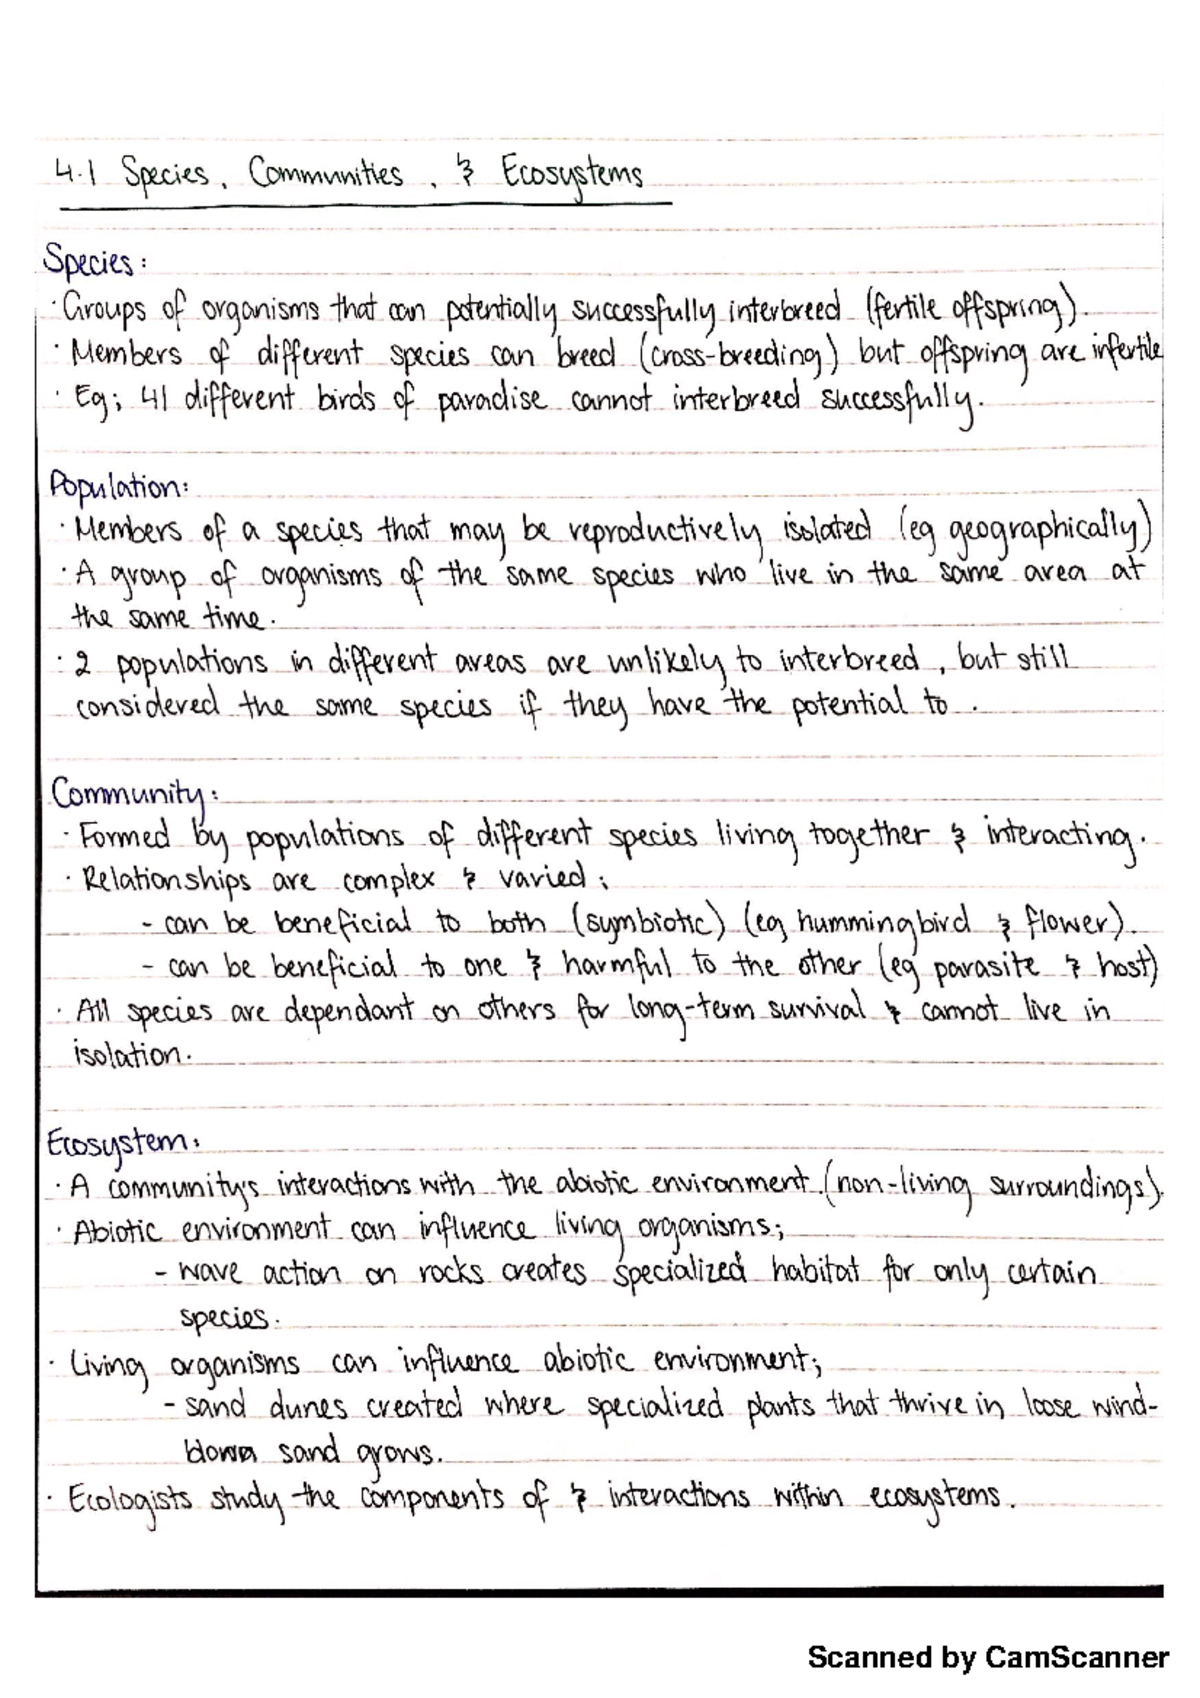 4.1 Species, Communities, & Ecosystems
Species:
· Groups of organisms that can potentially successfully interbreed (fertile offspring).
· Members of different species can breed (cross-breeding) but offspring are infertile
· Eg; 41 different birds of paradise cannot interbreed successfully.
Population:
· Members of a species that may be reproductively isolated (eg geographically)
· A group of organisms of the same species who live in the same area at
the same time.
· 2 populations in different areas are unlikely to interbreed, but still
considered the same species if they have the potential to.
Community:
· Formed by populations of different species living together & interacting.
· Relationships are complex & varied;
- can be beneficial to both (symbiotic) (eg hummingbird & flower).
- can be beneficial to one & harmful to the other (eg parasite & host)
· All species are dependant on others for long-term survival & cannot live in
isolation.
Ecosystem:
· A community's interactions with the abiotic environment (non-living surroundings).
· Abiotic environment can influence living organisms;
- wave action on rocks creates specialized habitat for only certain
species.
· Living organisms can influence abiotic environment;
- sand dunes created where specialized plants that thrive in loose wind-
blown sand grows.
· Ecologists study the components of & interactions within ecosystems.
Scanned by CamScanner